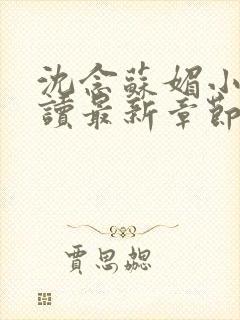 沈念蘇媚小
讀最新章節
賈思勰